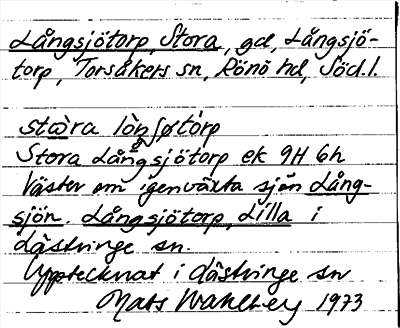 Långsjötorp, Stora, gd, Långsjö-
torp, Torsåkers sn, Rönö hd, Söd.l.
stὼra lòŋʃøtórp
Stora Långsjötorp ek 9H 6h
Väster om igenväxta sjön Lång-
sjön. Långsjötorp, Lilla i
Lästringe sn.
Upptecknat i Lästringe sn
Mats Wahlberg 1973